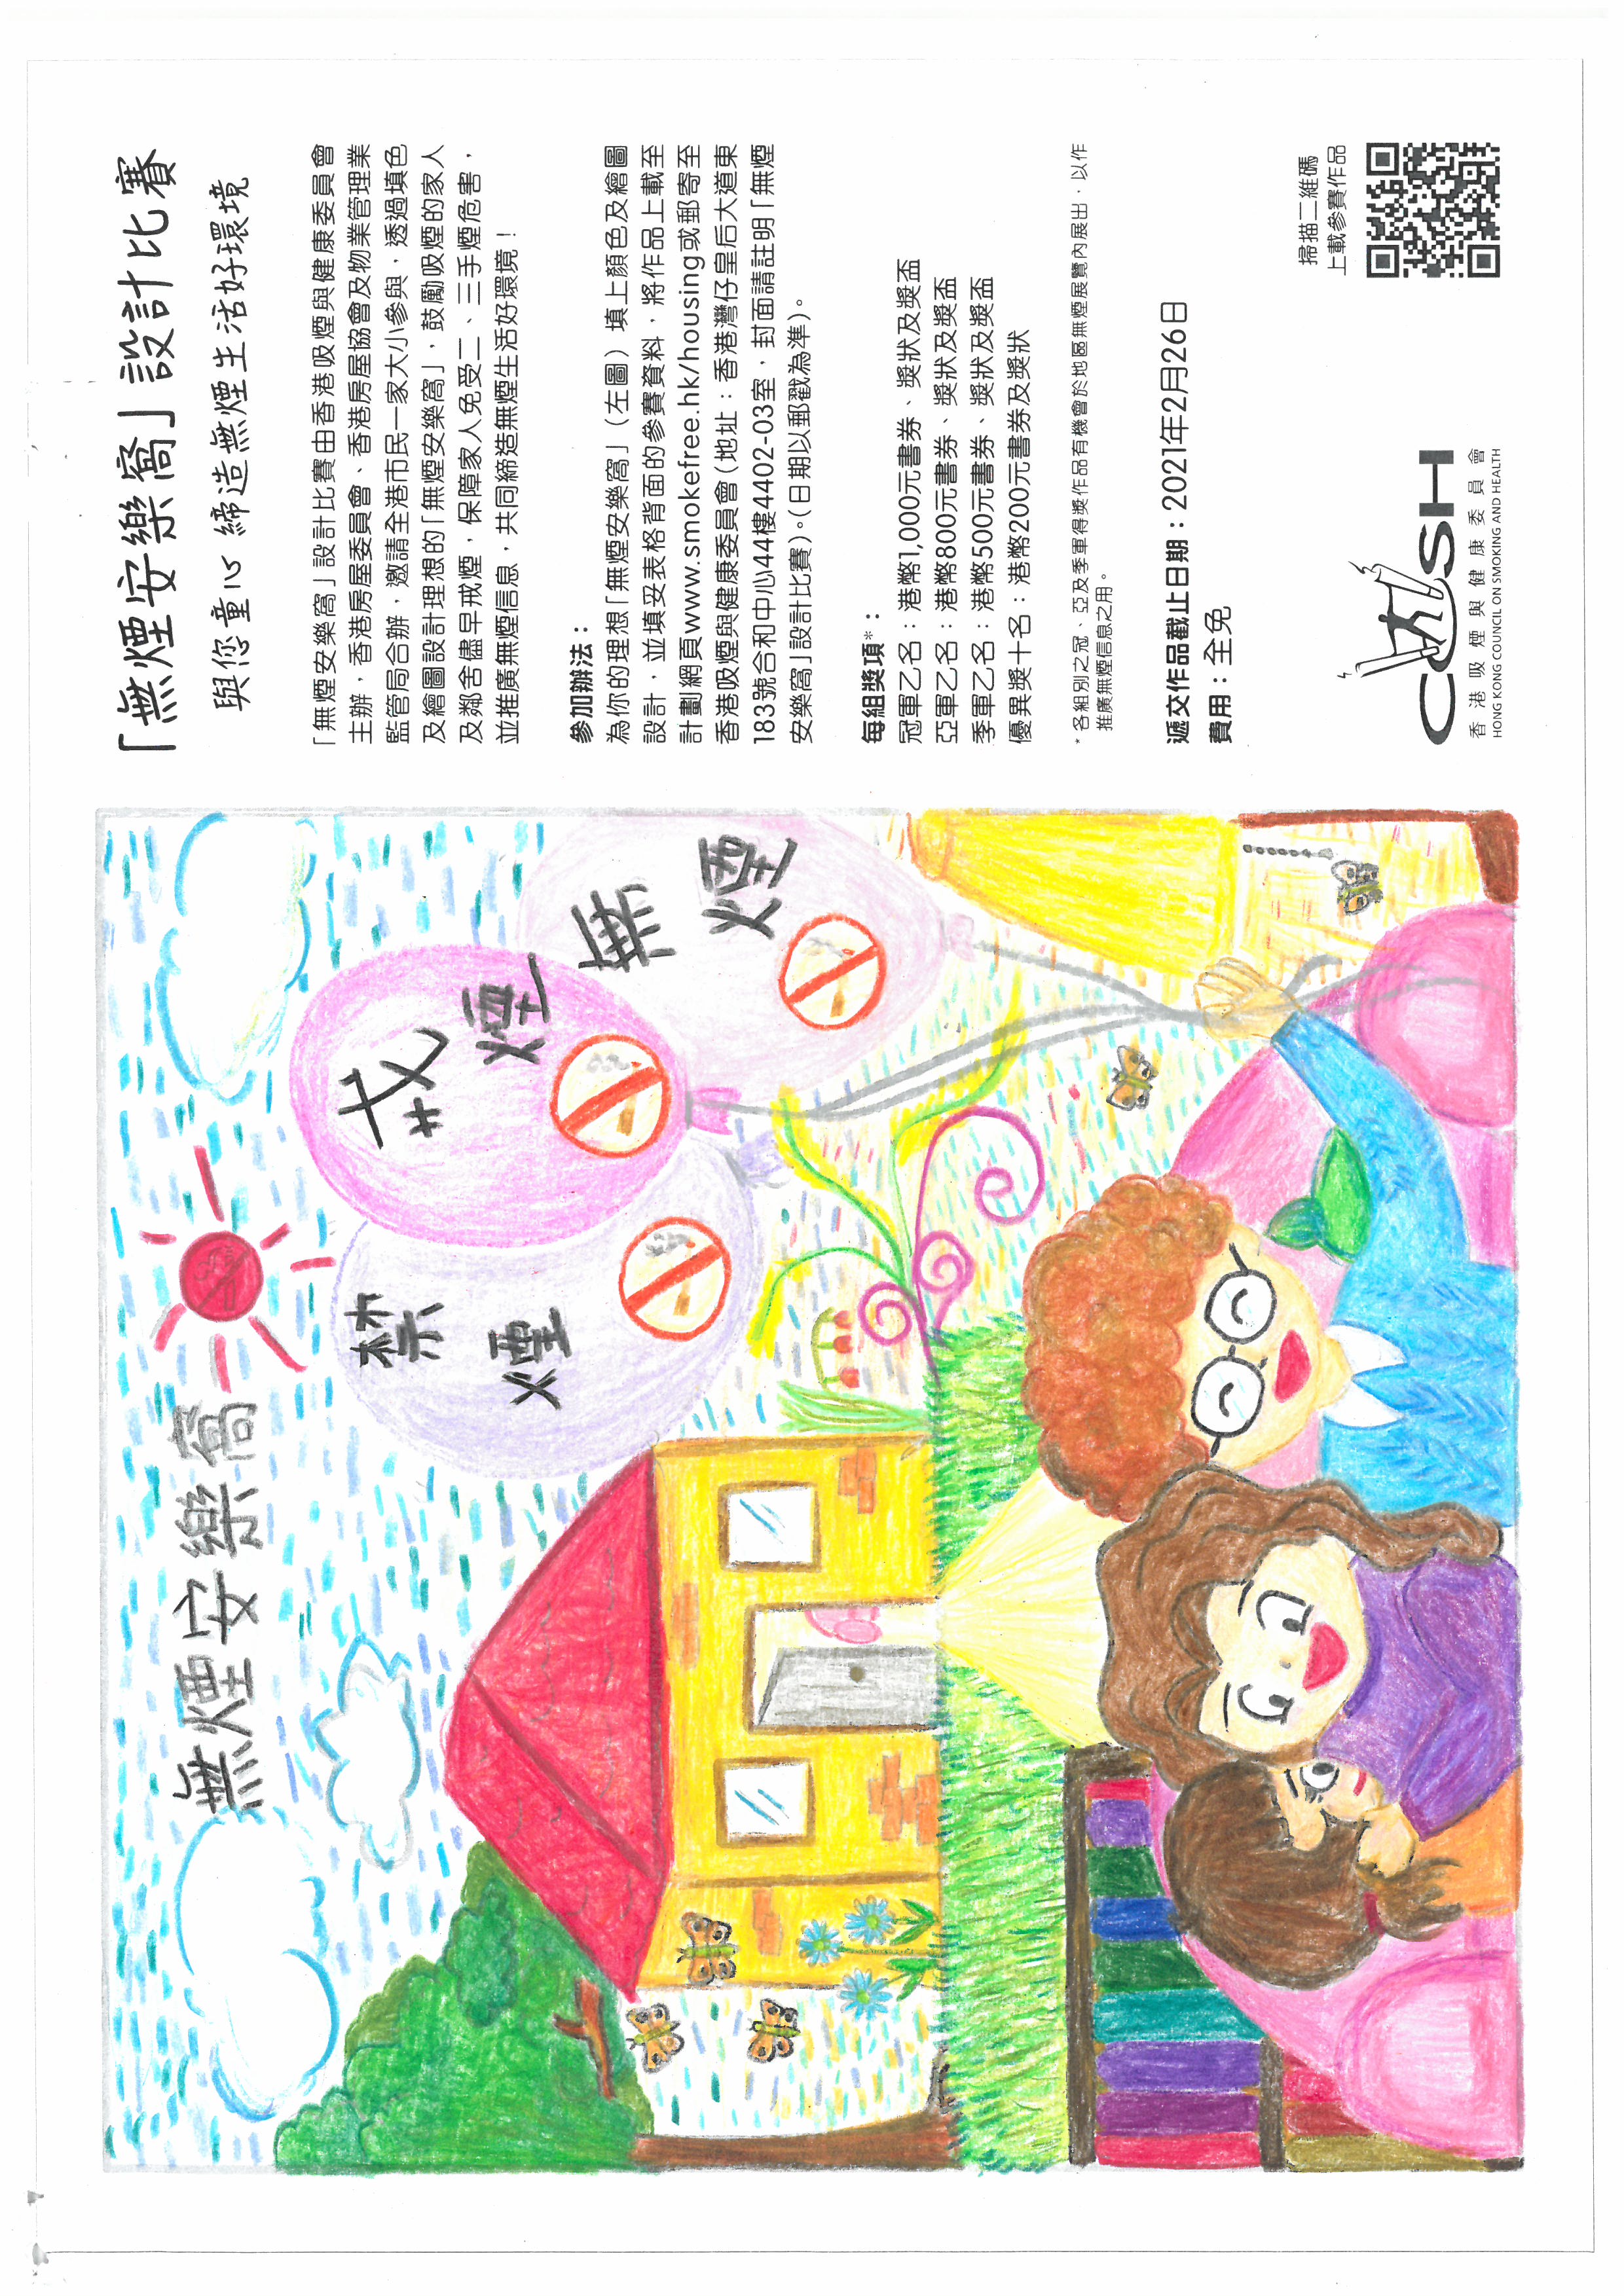 無煙安樂窩
戒煙
無煙
禁煙
「無煙安樂窩」設計比賽
與您童心 締造無煙生活好環境
「無煙安樂窩」設計比賽由香港吸煙與健康委員會
主辦，香港房屋委員會、香港房屋協會及物業管理業
監管局合辦，邀請全港市民一家大小參與，透過填色
及繪圖設計理想的「無煙安樂窩」，鼓勵吸煙的家人
及鄰舍儘早戒煙，保障家人免受二、三手煙危害，
並推廣無煙信息，共同締造無煙生活好環境！
參加辦法：
為你的理想「無煙安樂窩」（左圖）填上顏色及繪圖
設計，並填妥表格背面的參賽資料，將作品上載至
計劃網頁www.smokefree.hk/housing或郵寄至
香港吸煙與健康委員會（地址：香港灣仔皇后大道東
183號合和中心44樓4402-03室，封面請註明「無煙
安樂窩」設計比賽）。（日期以郵戳為準）。
每組獎項*：
冠軍乙名：港幣1,000元書券、獎狀及獎盃
亞軍乙名：港幣800元書券、獎狀及獎盃
季軍乙名：港幣500元書券、獎狀及獎盃
優異獎十名：港幣200元書券及獎狀
* 各組別之冠、亞及季軍得獎作品有機會於地區無煙展覽內展出，以作
推廣無煙信息之用。
遞交作品截止日期：2021年2月26日
費用：全免
COSH
香港吸煙與健康委員會
HONG KONG COUNCIL ON SMOKING AND HEALTH
掃描二維碼
上載參賽作品